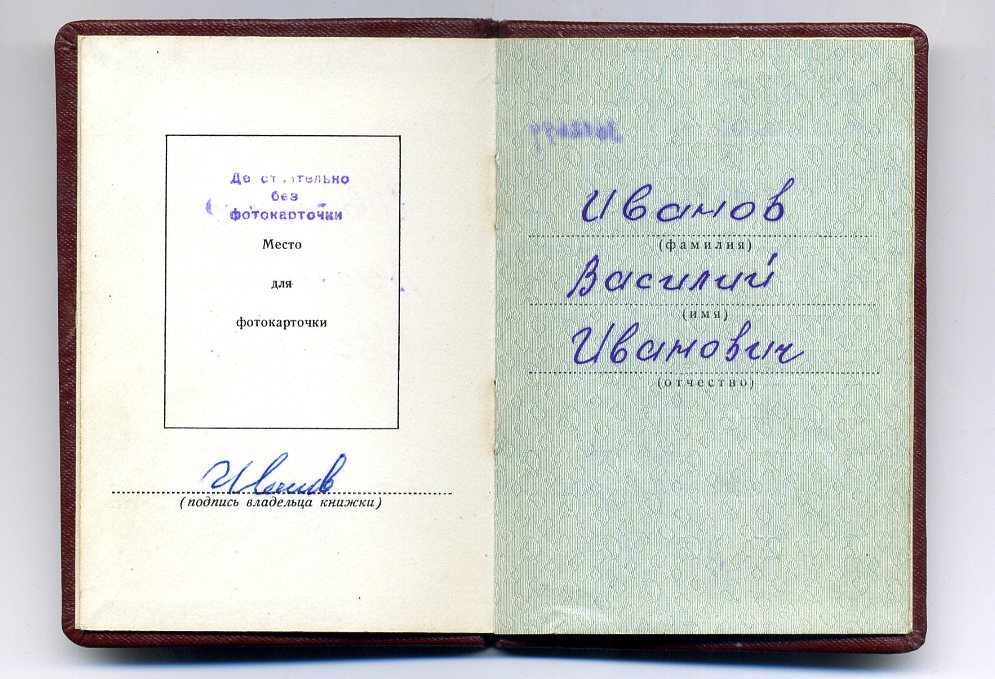 Де ст ительно
без
фотокарточки
Место
для
фотокарточки
Иванов
(подпись владельца книжки)
Иванов
(фамилия)
Василий
(имя)
Иванович
(отчество)